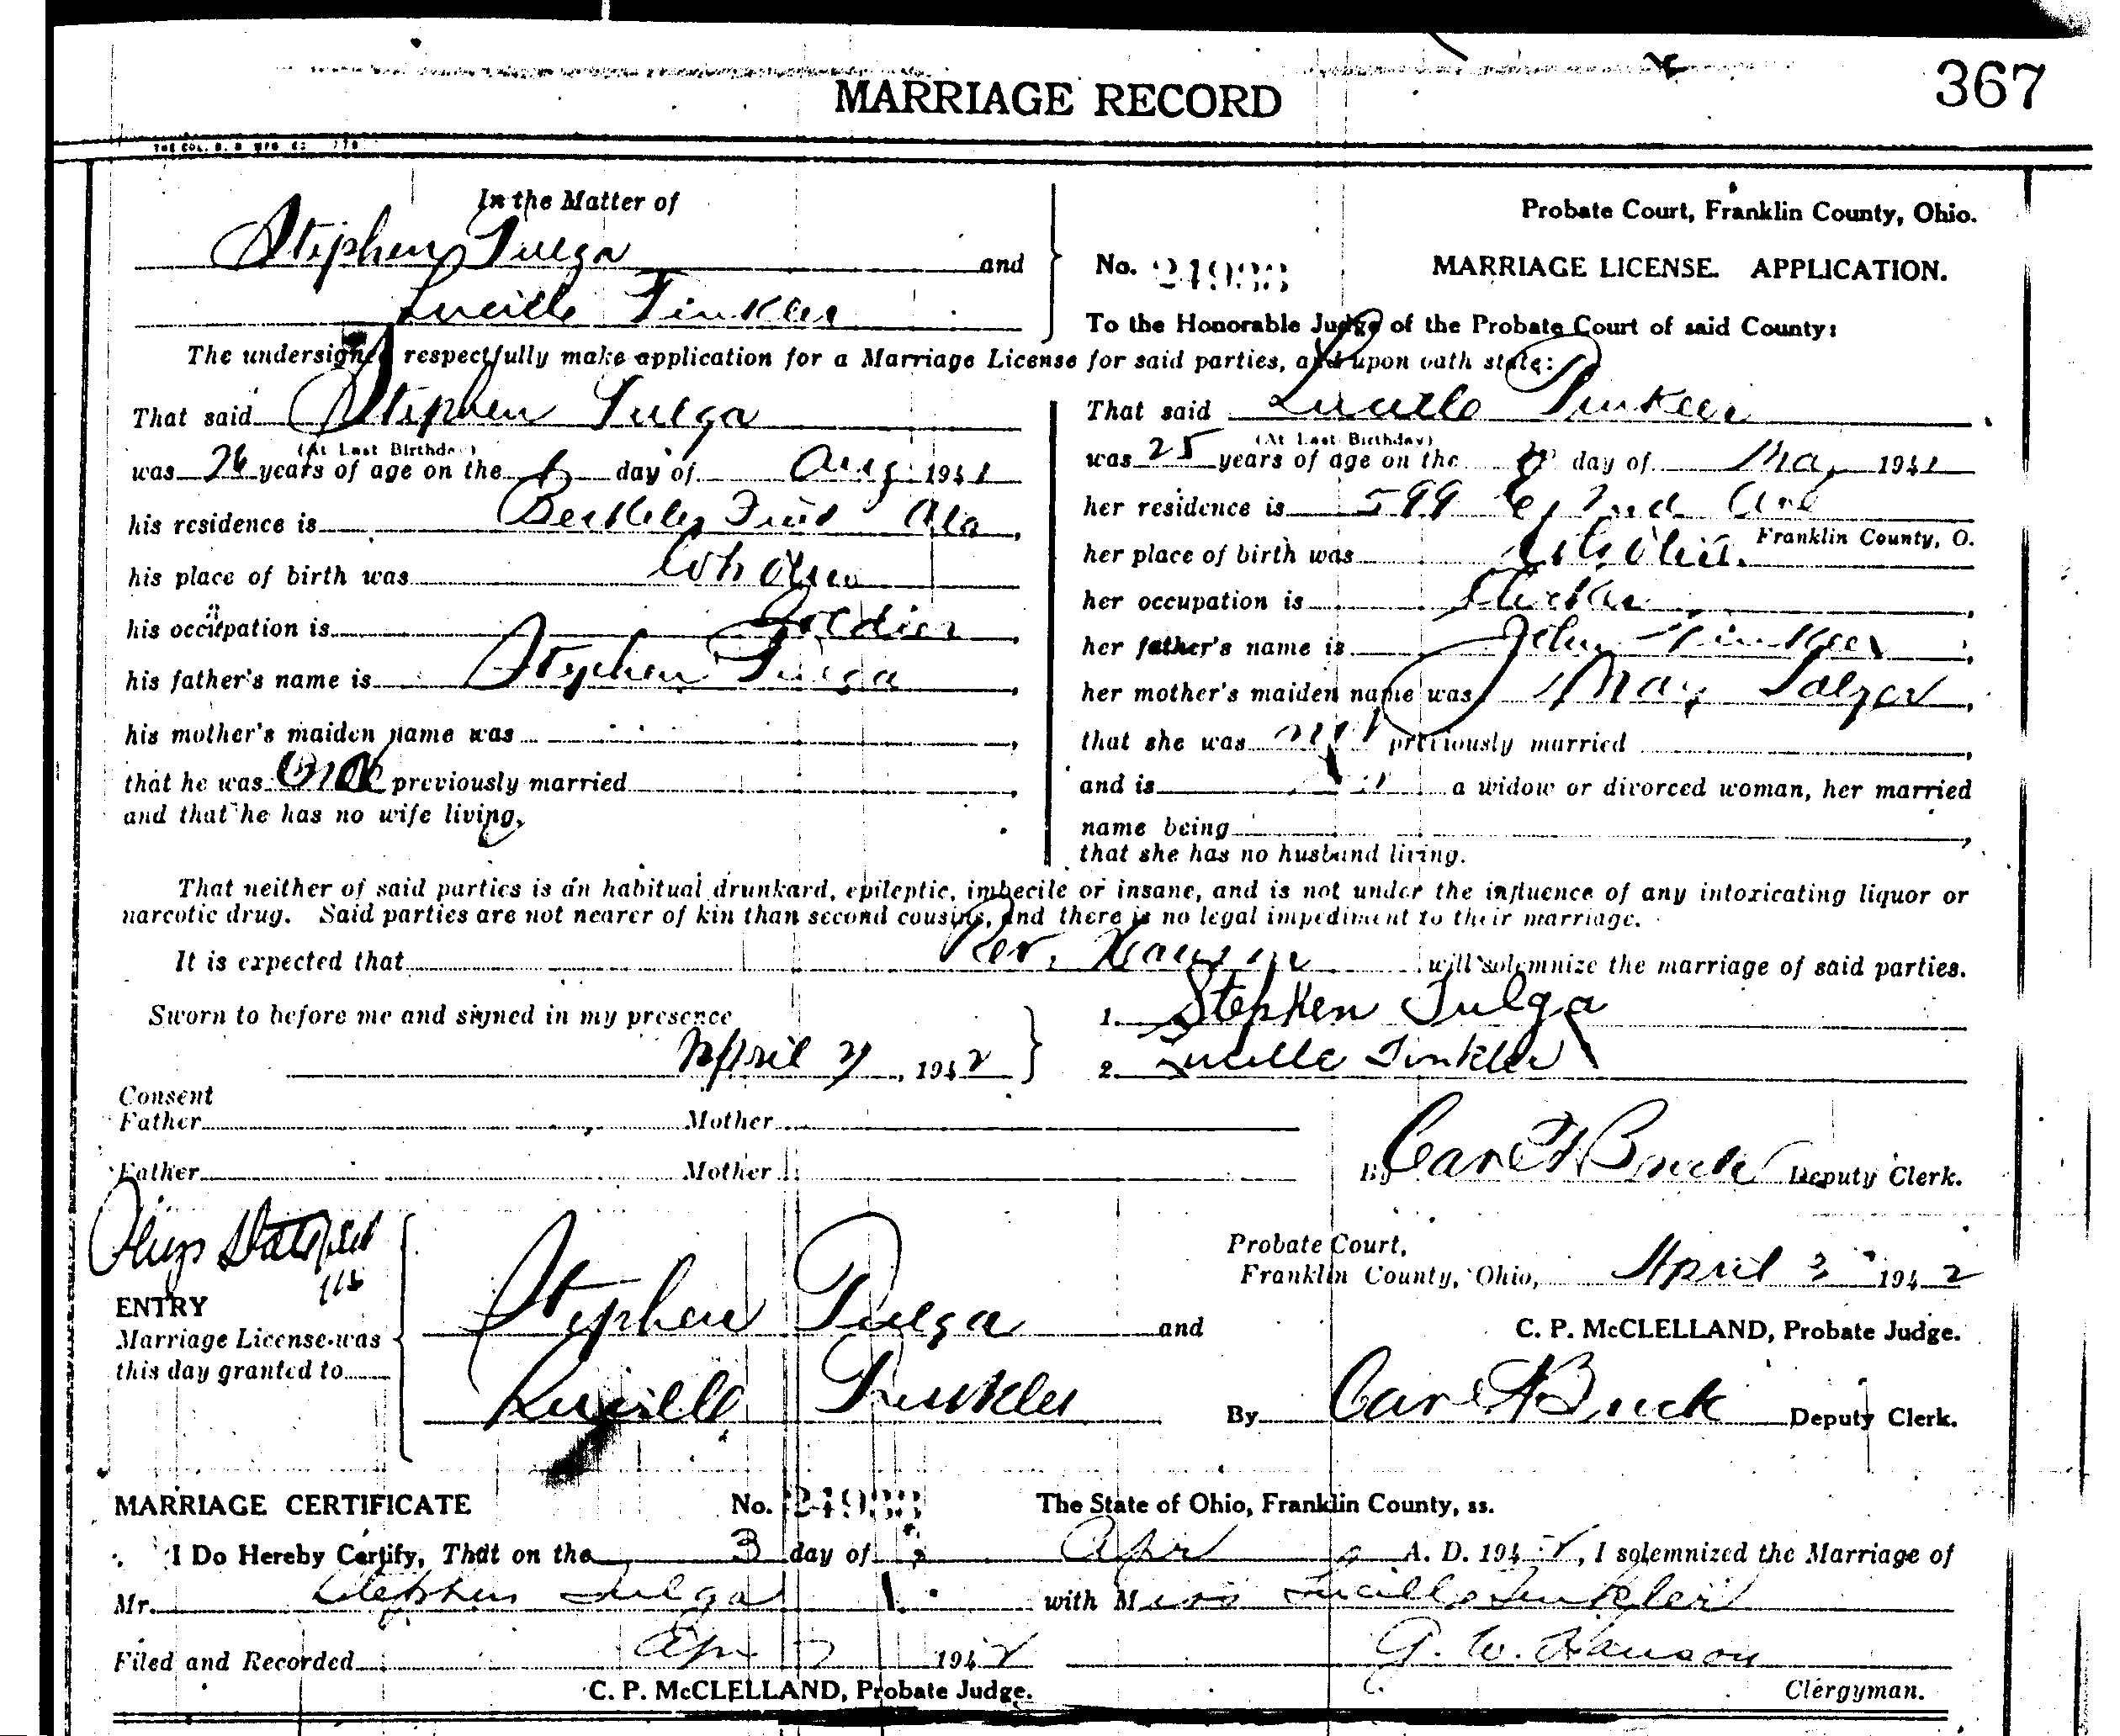 MARRIAGE RECORD
367
In the Matter of
Stephen Tulga and
Lucille Tinkler
Probate Court, Franklin County, Ohio.
No. 24933 MARRIAGE LICENSE. APPLICATION.
To the Honorable Judge of the Probate Court of said County:
The undersigned respectfully make application for a Marriage License for said parties, and upon oath state:
That said Stephen Tulga
(At Last Birthday)
was 26 years of age on the 6 day of Aug 1941
his residence is Field Ala,
his place of birth was
his occupation is Soldier,
his father's name is Stephen Tulga,
his mother's maiden name was ,
that he was previously married ,
and that he has no wife living,
That said Lucille Tinkler
(At Last Birthday)
was 25 years of age on the day of May 1941
her residence is 599 E 2nd Ave
Franklin County, O.
her place of birth was
her occupation is ,
her father's name is John Tinkler,
her mother's maiden name was May,
that she was not previously married ,
and is a widow or divorced woman, her married
name being ,
that she has no husband living.
That neither of said parties is an habitual drunkard, epileptic, imbecile or insane, and is not under the influence of any intoxicating liquor or
narcotic drug. Said parties are not nearer of kin than second cousins, and there is no legal impediment to their marriage.
It is expected that Rev. Hanson will solemnize the marriage of said parties.
Sworn to before me and signed in my presence
April , 1942
1. Stephen Tulga
2. Lucille Tinkler
Consent
Father , Mother
Father Mother
By Carl H Buck Deputy Clerk.
ENTRY
Marriage License was
this day granted to
Stephen Tulga and
Lucille Tinkler
Probate Court,
Franklin County, Ohio, April 3 1942
C. P. McCLELLAND, Probate Judge.
By Carl H Buck Deputy Clerk.
MARRIAGE CERTIFICATE No. 24933 The State of Ohio, Franklin County, ss.
I Do Hereby Certify, That on the 3 day of Apr A. D. 1942, I solemnized the Marriage of
Mr. Stephen Tulga with Miss Lucille Tinkler
Filed and Recorded Apr 1942 G. W. Hanson
C. P. McCLELLAND, Probate Judge. Clergyman.